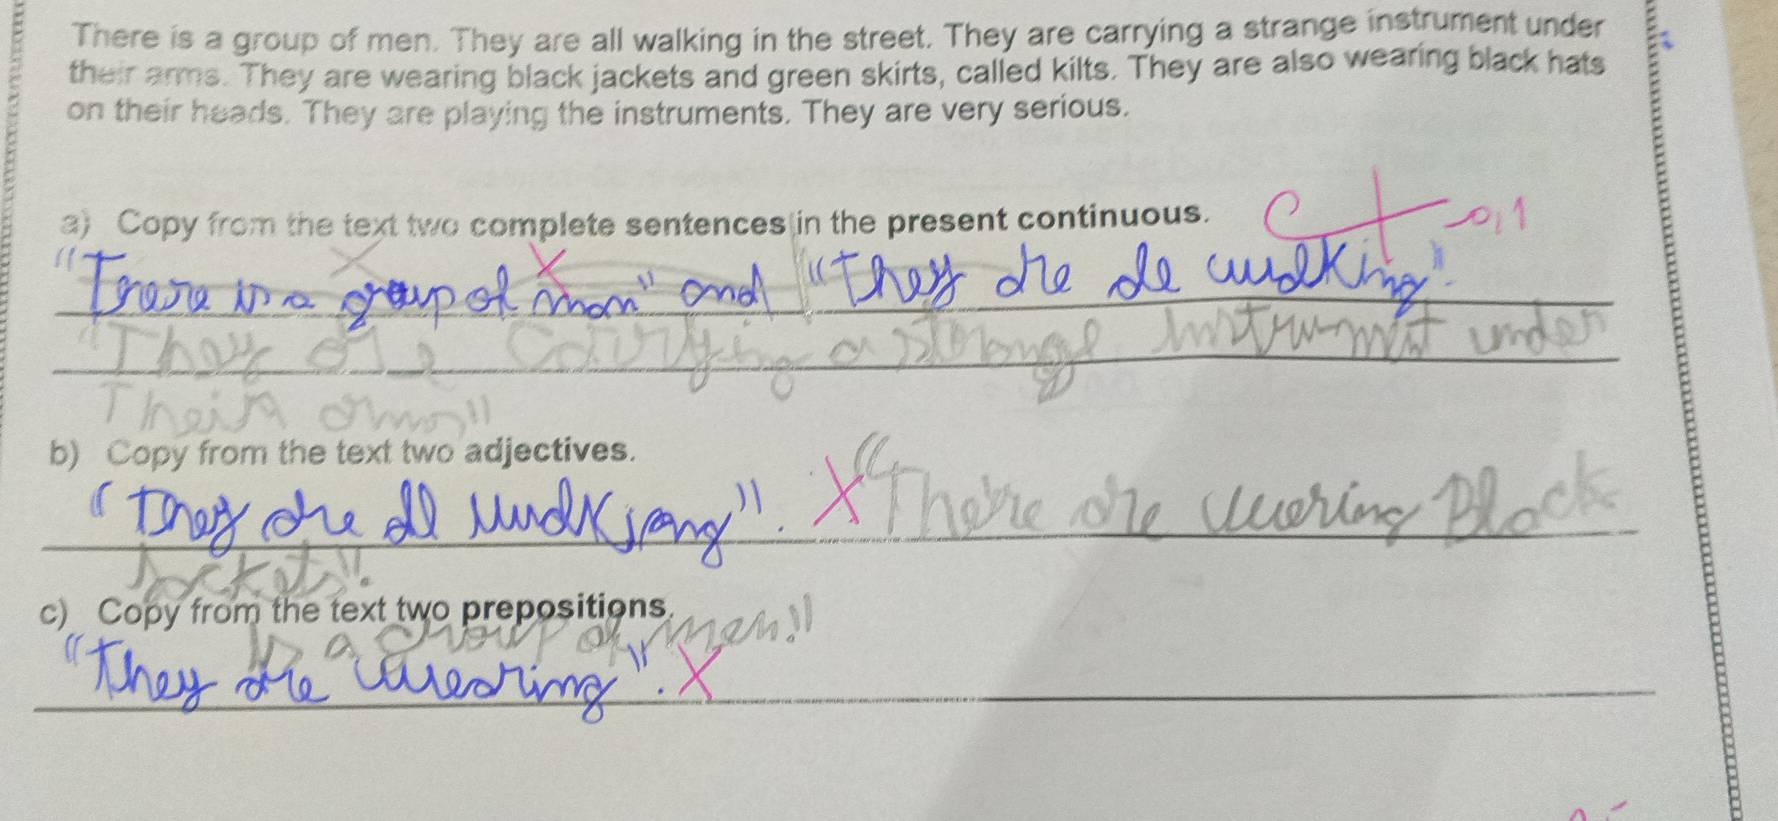 There is a group of men. They are all walking in the street. They are carrying a strange instrument under
their arms. They are wearing black jackets and green skirts, called kilts. They are also wearing black hats
on their heads. They are playing the instruments. They are very serious.
a) Copy from the text two complete sentences in the present continuous.
"There is a group of man" and "They are walking".
"They are carrying a strange instrument under
Their arms"
b) Copy from the text two adjectives.
"They are all". "There are wearing Black
Jackets".
c) Copy from the text two prepositions.
is a group of men."
"They are wearing".